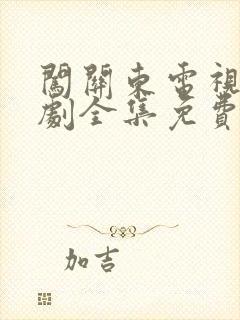 闖關東電視
劇全集免費
加吉